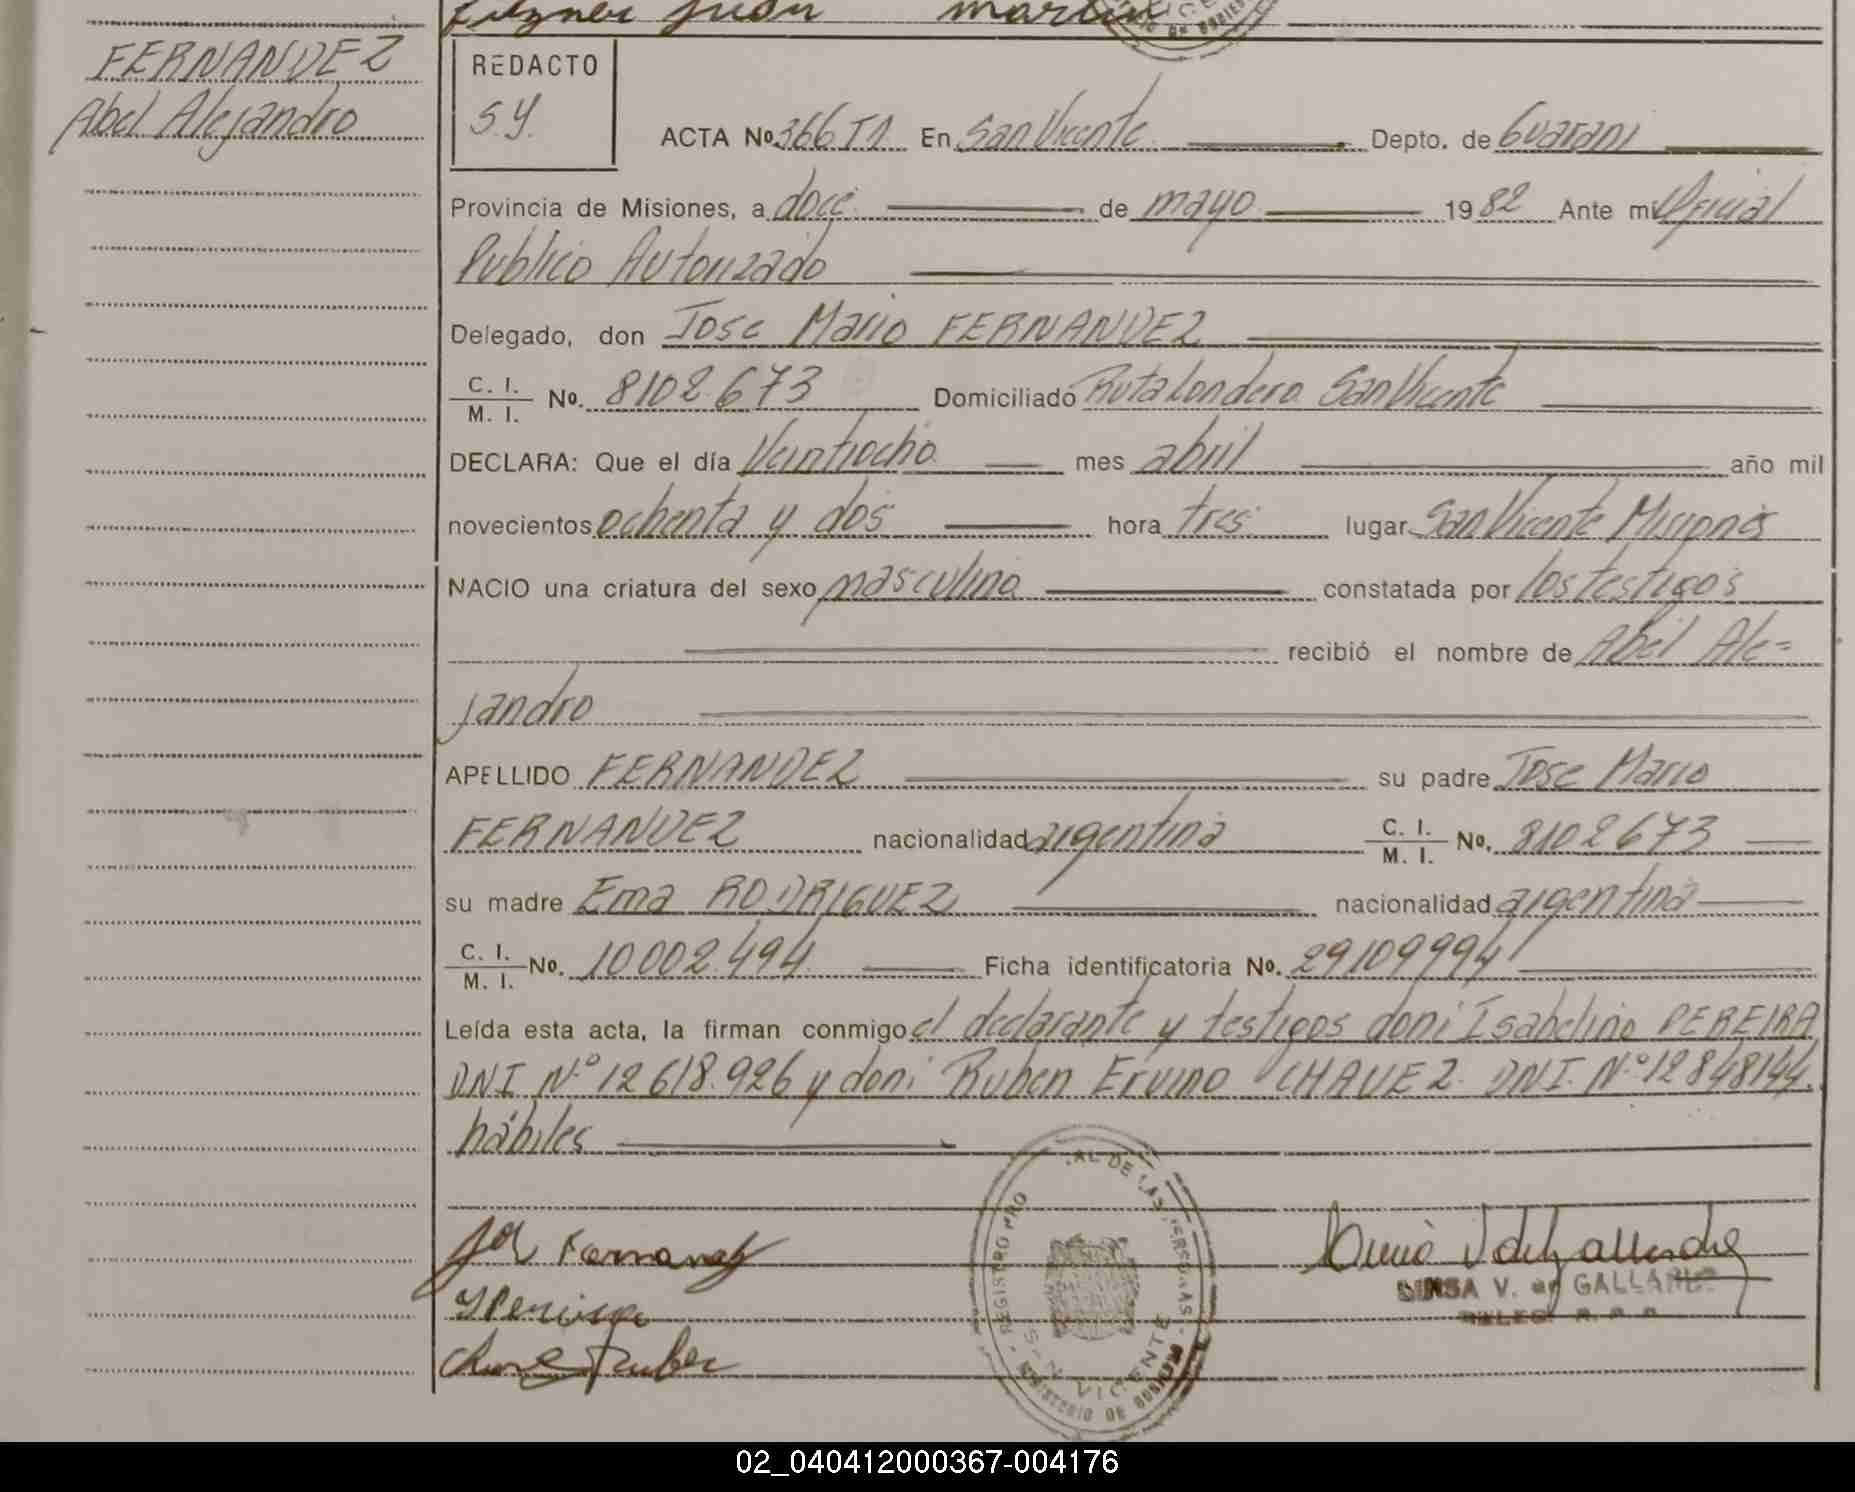 Juan Martin
FERNANDEZ
Abel Alejandro
REDACTO
S.Y.
ACTA No. 366 T1. En San Vicente Depto. de Guarani
Provincia de Misiones, a doce de mayo 1982 Ante mi Oficial
Publico Autorizado
Delegado, don Jose Mario FERNANDEZ
C. I. / M. I. No. 8102.673 Domiciliado Ruta Londero San Vicente
DECLARA: Que el día Veintiocho mes abril año mil
novecientos ochenta y dos hora tres lugar San Vicente Misiones
NACIO una criatura del sexo masculino constatada por los testigos
recibió el nombre de Abel Ale=
jandro
APELLIDO FERNANDEZ su padre Jose Mario
FERNANDEZ nacionalidad argentina C. I. / M. I. No. 8102673
su madre Ema RODRIGUEZ nacionalidad argentina
C. I. / M. I. No. 10002.494 Ficha identificatoria No. 29109994
Leída esta acta, la firman conmigo el declarante y testigos don: Isabelino PEREIRA
DNI N.º 12618.926 y don: Ruben Ervino CHAVEZ. DNI. N.º 12848144.
hábiles
REGISTRO PRO AL DE LAS PERSONAS - MINISTERIO DE GOBIERNO
SAN VICENTE
V. de GALLARDO
02_040412000367-004176